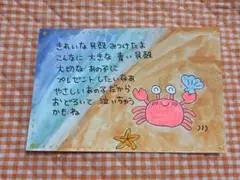 きれいな 貝殻 みつけたよ
こんなに 大きな 青い 貝殻
大切な あの子に
プレゼントしたいなあ
やさしいあの子だから
おどろいて 泣いちゃう
かもね